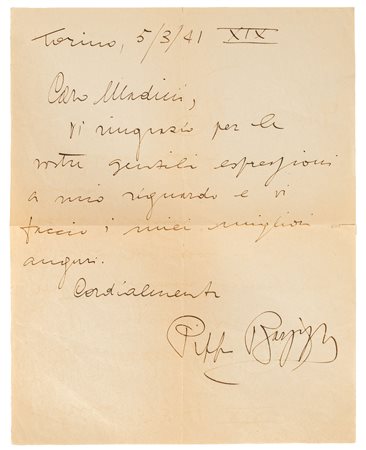 Torino, 5/3/41 XIX
Caro Madini,
Vi ringrazio per le
vostre gentili espressioni
a mio riguardo e vi
faccio i miei migliori
auguri.
Cordialmente
Pippo Barzizza